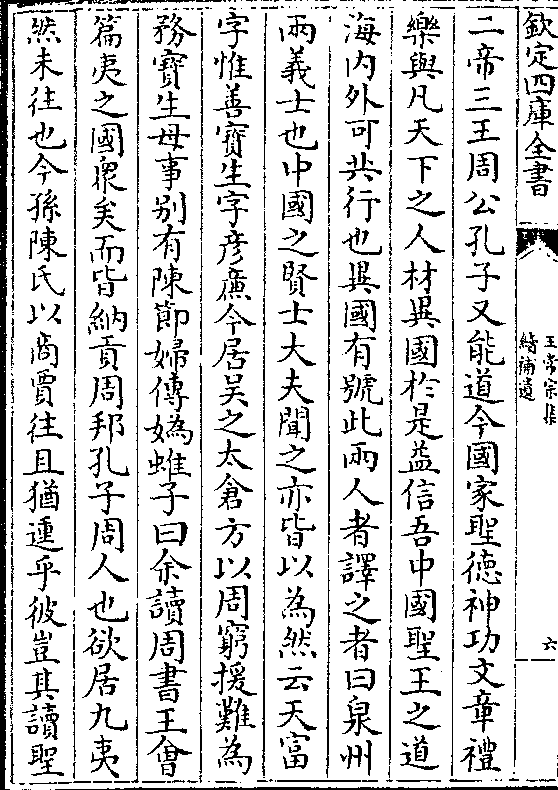 欽定四庫全書
王常宗集
續補遺
六
二帝三王周公孔子又能道今國家聖德神功文章禮
樂與凡天下之人材異國於是益信吾中國聖王之道
海内外可共行也異國有號此兩人者譯之者曰泉州
兩義士也中國之賢士大夫聞之亦皆以為然云天富
字惟善寳生字彦㢘今居吴之太倉方以周窮援難為
務寳生母事别有陳節婦傳媯蜼子曰余讀周書王㑹
篇夷之國衆矣而皆納貢周邦孔子周人也欲居九夷
然未徃也今孫陳氏以商賈徃且猶運乎彼豈其讀聖